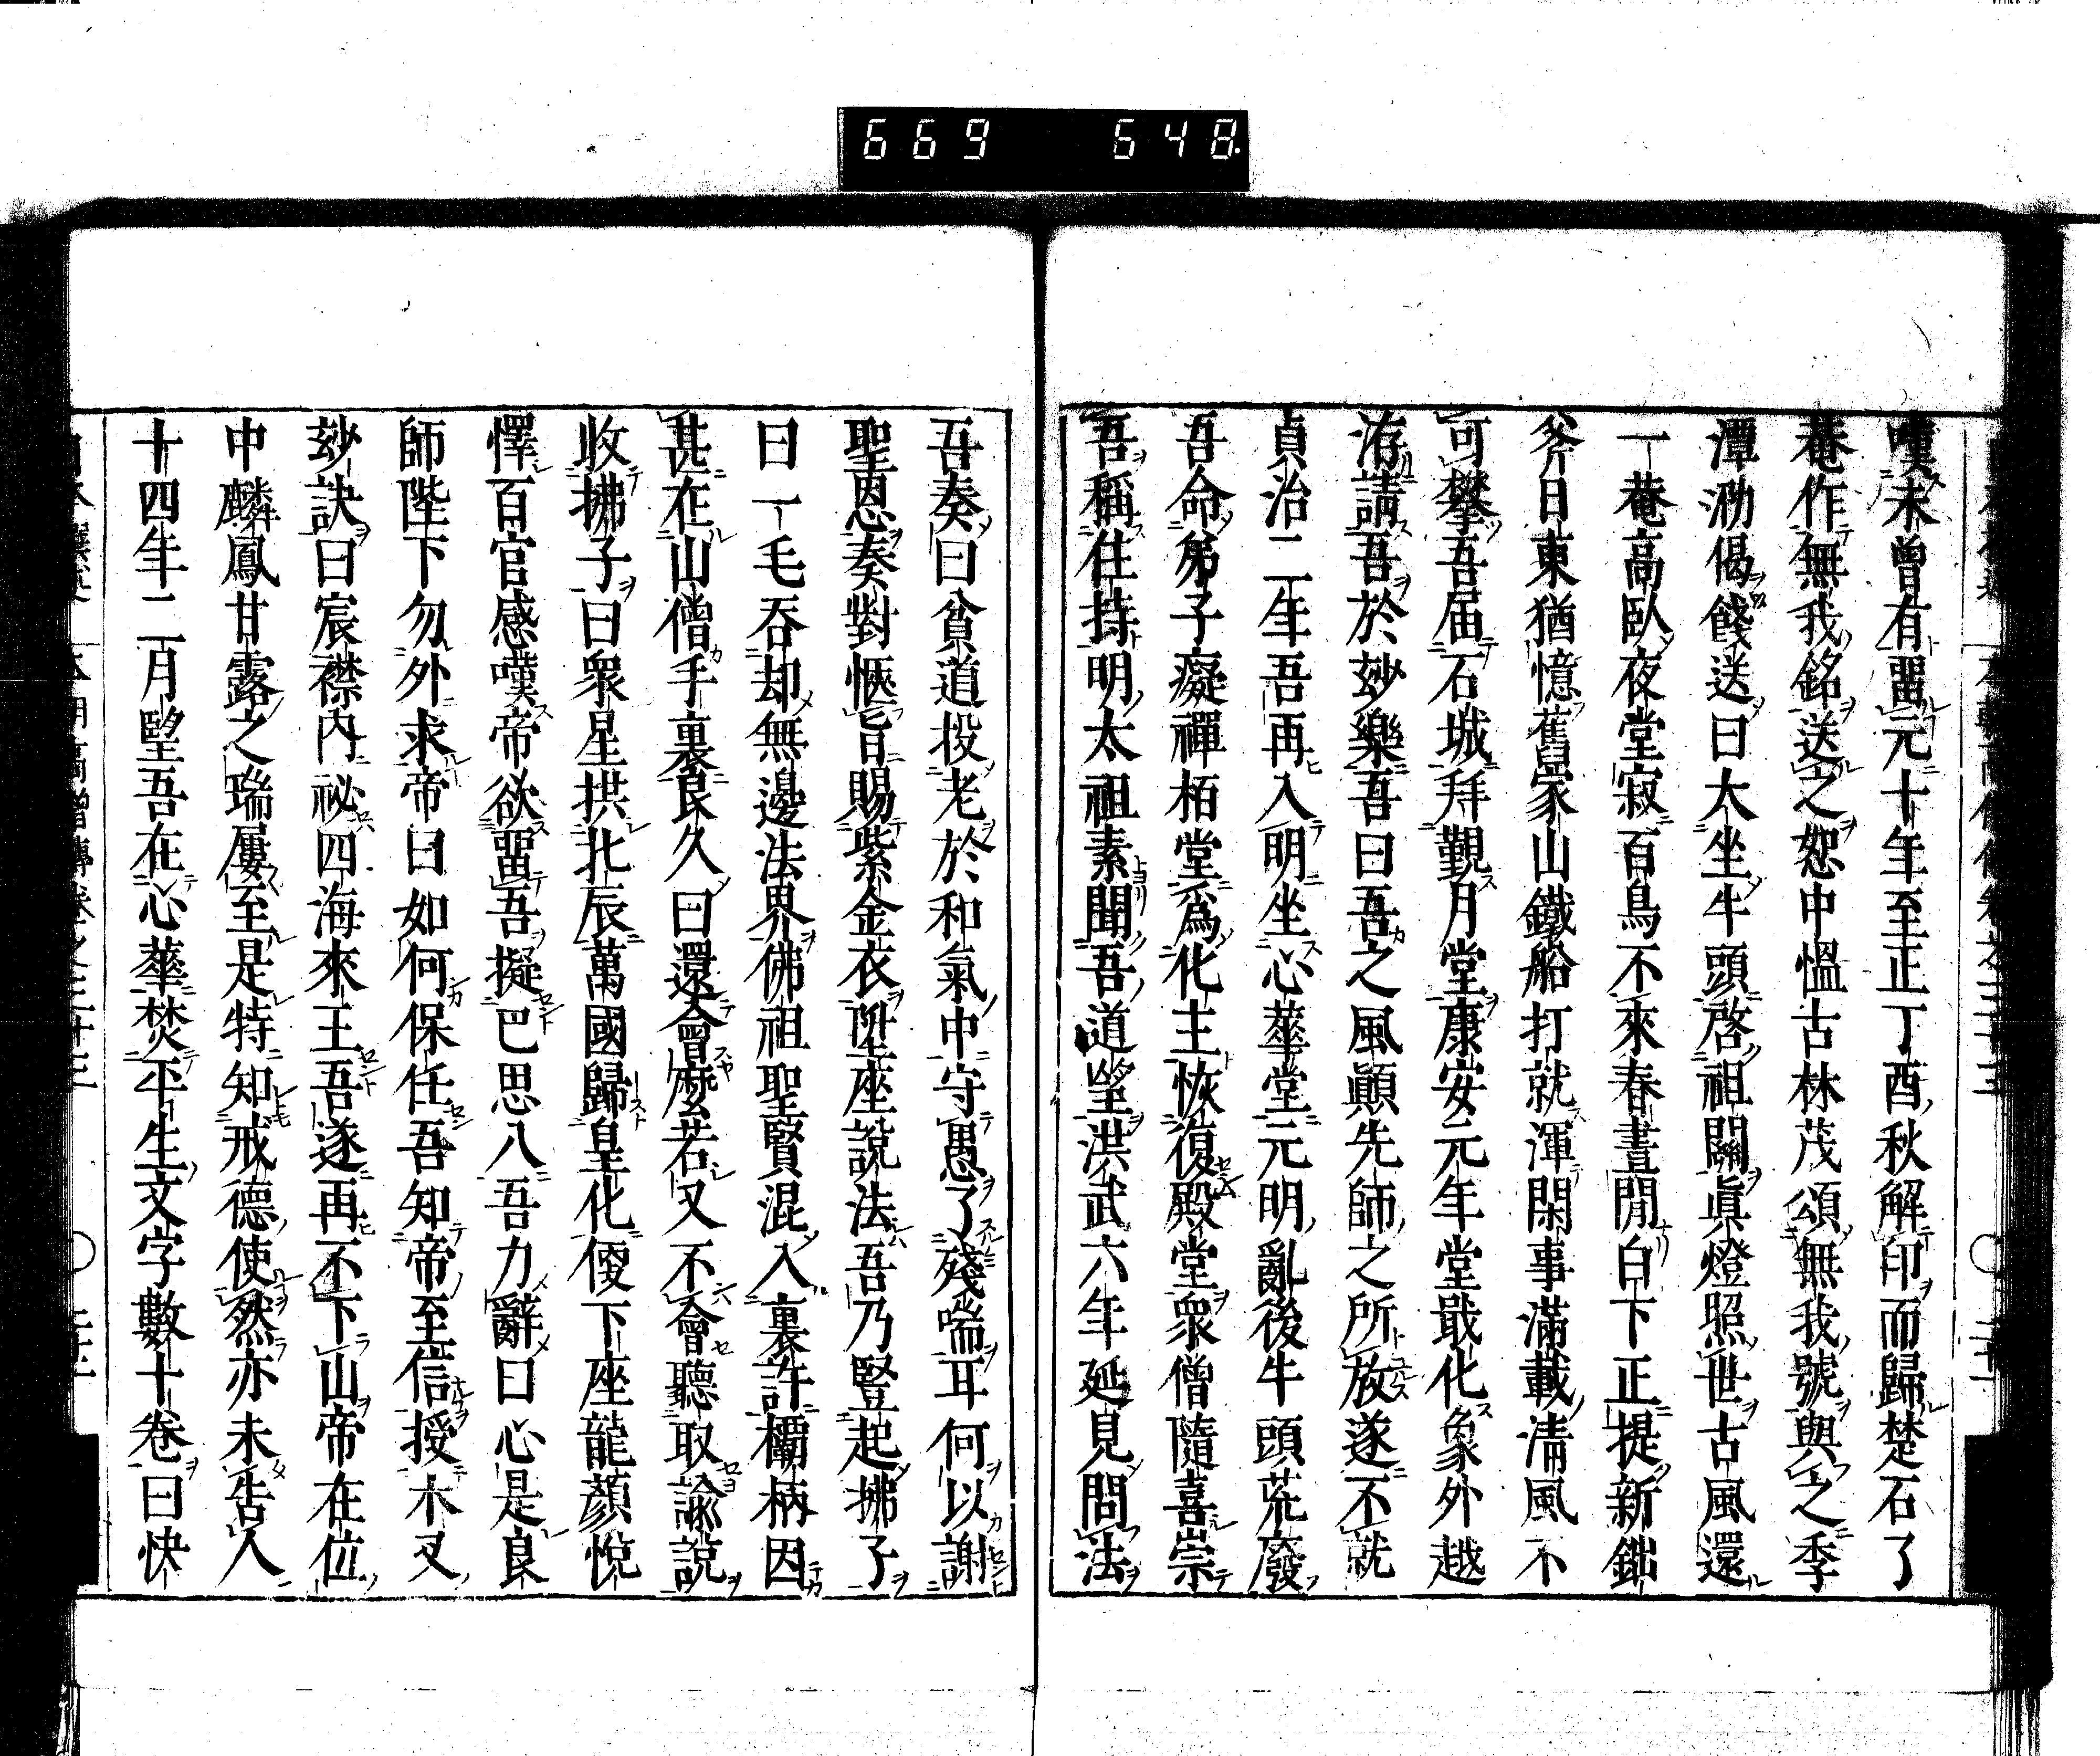 669 648
嘆未曾有畱元十年至正丁酉秋解印而歸楚石了
菴作無我銘送之恕中慍古林茂頌無我號與之季
潭泐偈餞送曰太坐牛頭啓祖關眞燈照世古風還
一菴高臥夜堂寂百鳥不來春晝閒白下正提新鈯
斧日東猶憶舊家山鐵船打就渾閑事滿載淸風不
可攀吾届石城拜觀月堂康安元年堂戢化象外越
洊請吾於玅樂吾曰吾之風顚先師之所放遂不就
貞治二年吾再入明坐心華堂元明亂後牛頭荒廢
吾命弟子癡禪栢堂爲化主恢復殿堂衆僧隨喜崇
吾稱住持明太祖素聞吾道望洪武六年延見問法
吾奏曰貧道投老於和氣中守愚了殘喘耳何以謝
聖恩奏對愜旨賜紫金衣陞座說法吾乃豎起拂子
曰一毛吞却無邊法界佛祖聖賢混入裏許欛柄因
甚在山僧手裏良久曰還會麼若又不會聽取諭說
收拂子曰衆星拱北辰萬國歸皇化便下座龍顏悅
懌百官感嘆帝欲畱吾擬巴思八吾力辭曰心是良
師陛下勿外求帝曰如何保任吾知帝至信授木叉
玅訣曰宸襟內祕四海來王吾遂再不下山帝在位
中麟鳳甘露之瑞屢至是特知戒德使然亦未告人
十四年二月望吾在心華焚平生文字數十卷曰快